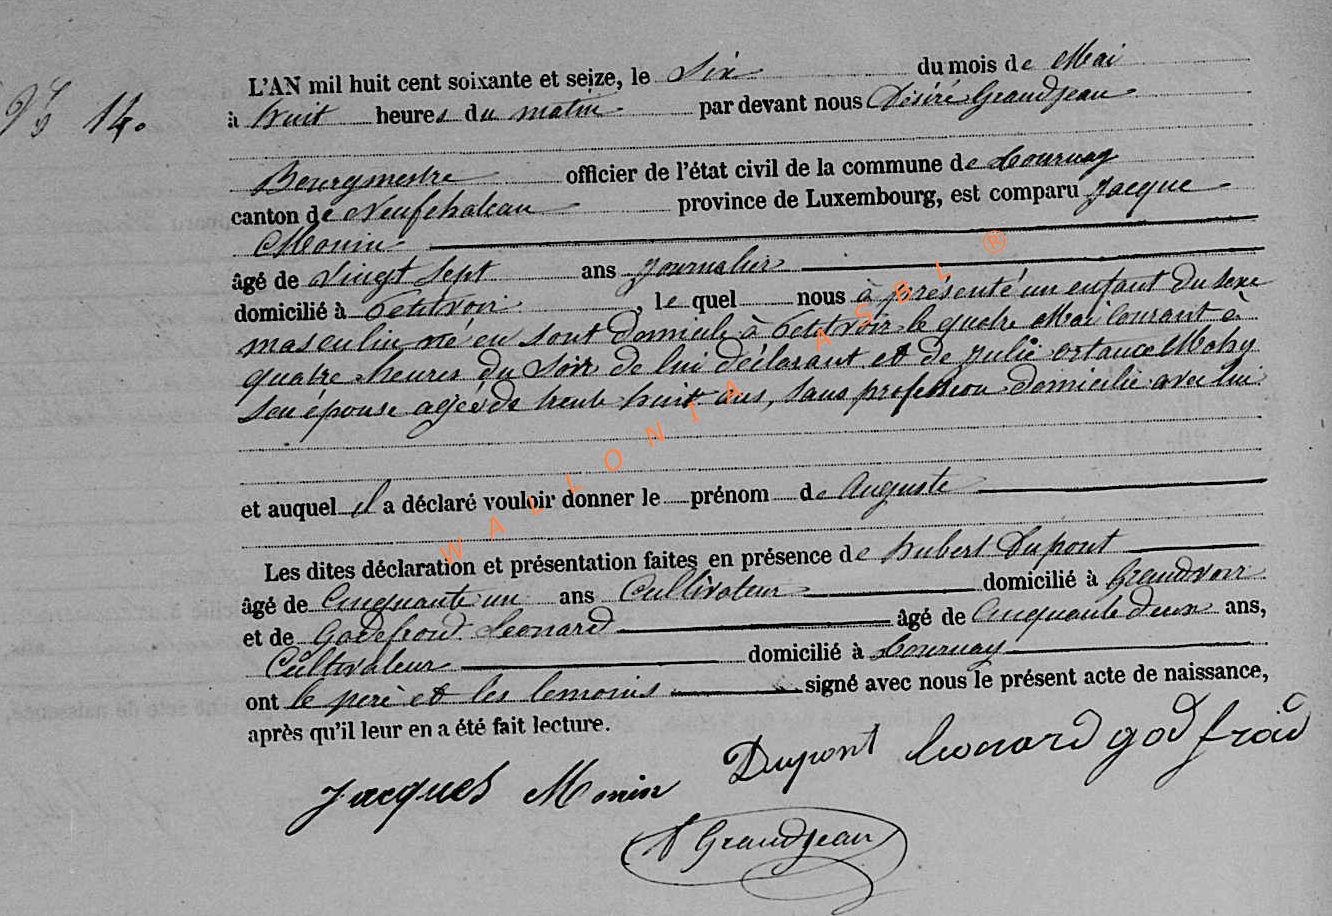 N° 14. L'AN mil huit cent soixante et seize, le Six du mois de Mai
à huit heures du matin par devant nous Désiré Grandjean
Bourgmestre officier de l'état civil de la commune de Tournay
canton de Neufchateau province de Luxembourg, est comparu Jacque
Monin
âgé de vingt sept ans Journalier
domicilié à Petitvoir, le quel nous à présenté un enfant du sexe
masculin né en sont domicile à Petitvoir le quatre Mai Courant à
quatre heures du Soir de lui déclarant et de Julie ortance Mohy
son épouse agée de trente huit ans, Sans profession domicilié avec lui
et auquel il a déclaré vouloir donner le prénom de Auguste
Les dites déclaration et présentation faites en présence de hubert Dupont
âgé de Cinquante un ans Cultivateur domicilié à Grandvoir
et de Godefroid Leonard âgé de Cinquante deux ans,
Cultivateur domicilié à Tournay
ont le père et les temoins signé avec nous le présent acte de naissance,
après qu'il leur en a été fait lecture.
Jacques Monin Dupont Leonard godfroid
D Grandjean
WALLONIA ASBL ®